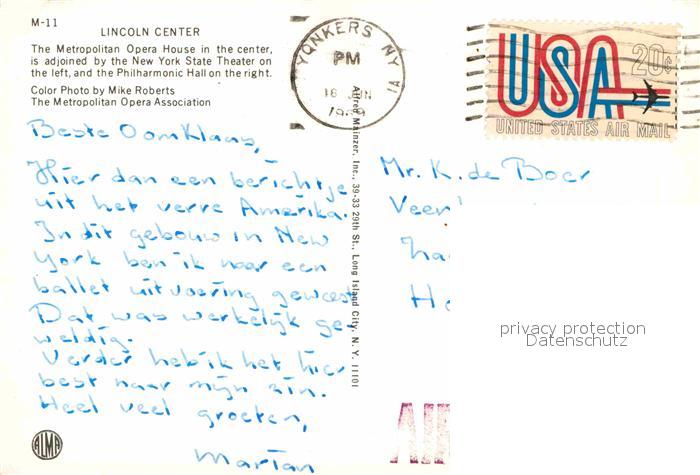 M-11
LINCOLN CENTER
The Metropolitan Opera House in the center,
is adjoined by the New York State Theater on
the left, and the Philharmonic Hall on the right.
Color Photo by Mike Roberts
The Metropolitan Opera Association
Beste Oom Klaas,
Hier dan een berichtje
uit het verre Amerika.
In dit gebouw in New
York ben ik naar een
ballet uitvoering geweest
Dat was werkelijk ge-
weldig.
Verder heb ik het hier
best naar mijn zin.
Heel veel groeten,
Martan
ALMA
Alfred Mainzer, Inc., 39-33 29th St., Long Island City, N. Y. 11101
YONKERS NY
PM
16 JUN
1969
USA 20¢
UNITED STATES AIR MAIL
Mr. K. de Boer
Veen
Ha
AI
privacy protection
Datenschutz